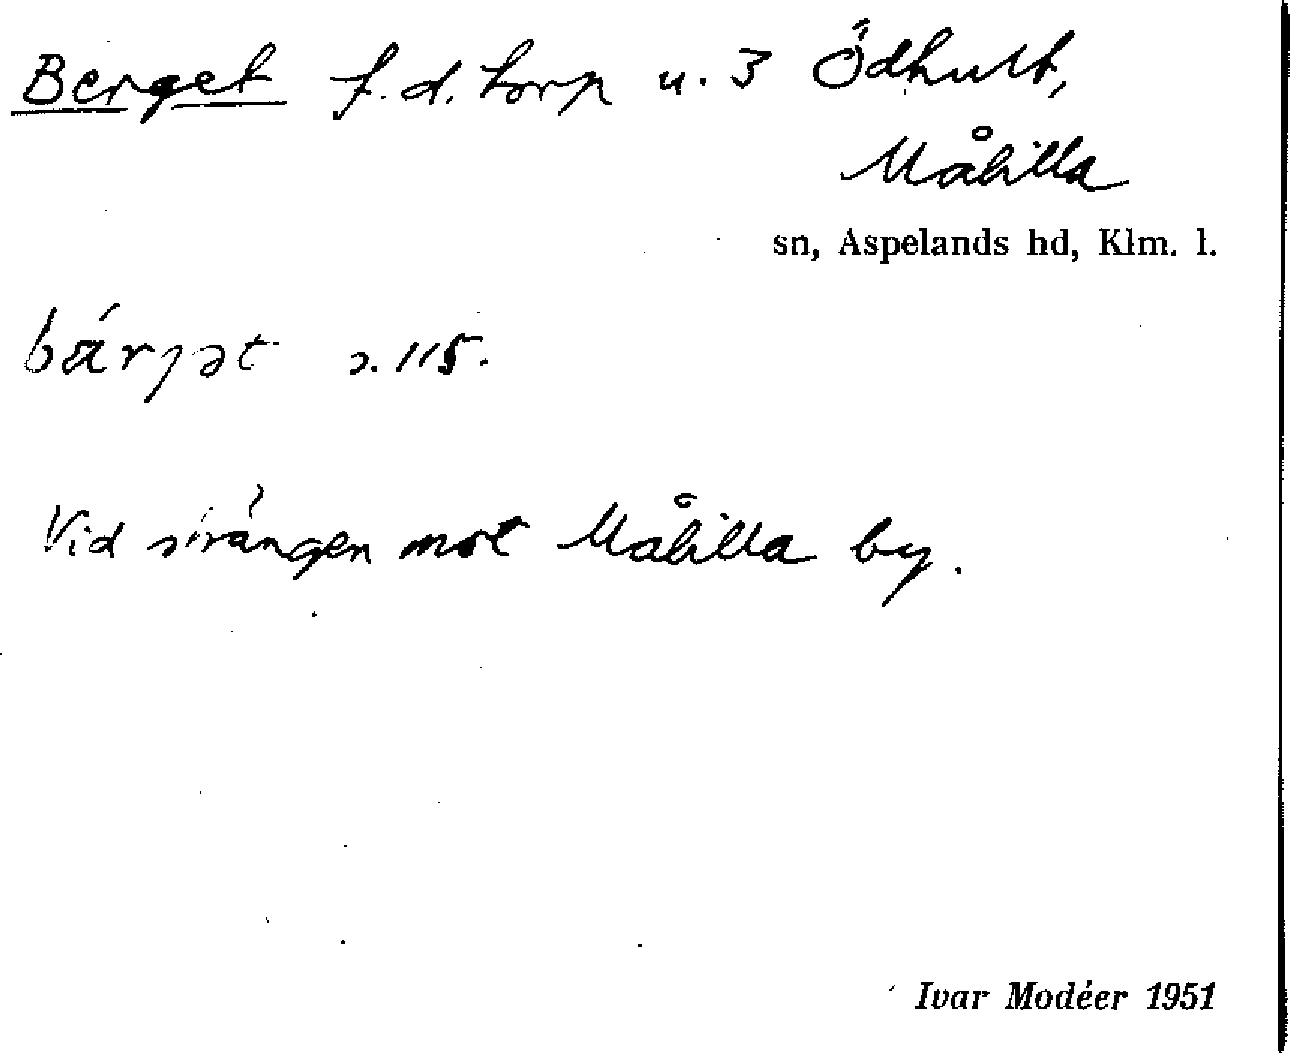 Berget f.d. torp u. 3 Ödhult,
Målilla
sn, Aspelands hd, Klm. l.
bä́rjət s. 115.
Vid svängen mot Målilla by.
Ivar Modéer 1951